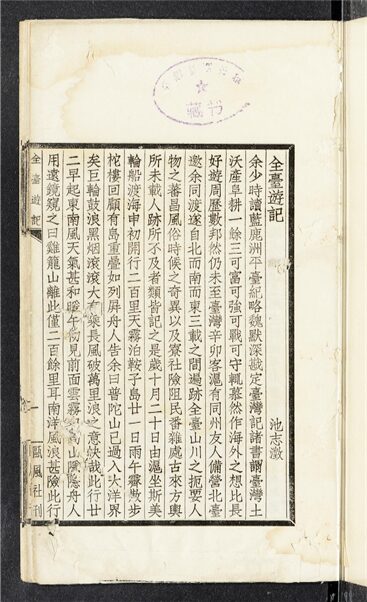 全臺遊記
池志澂
余少時讀藍鹿洲平臺紀略魏默深戡定臺灣記諸書謂臺灣土
沃產阜耕一餘三可富可強可戰可守輒慕然作海外之想比長
好遊周歷數邦然仍未至臺灣辛卯客滬有同州友人備營北臺
邀余同渡遂自北而南而東三載之間遍跡全臺山川之扼要人
物之蕃昌風俗時候之奇異以及寮社險阻民番雜處古來方輿
所未載人跡所不及者類皆記之是歲十月二十日由滬坐斯美
輪船渡海申初開行二百里天霧泊鞍子島廿一日雨午霽散步
柁樓回顧有島重疊如列屏舟人告余曰普陀山已過入大洋界
矣巨輪鼓浪黑烟滾滾大有乘長風破萬里浪之意快哉此行廿
二早起東南風天氣甚和暖午初見前面雲霧中高山隱隱舟人
用遠鏡窺之曰雞籠山離此僅二百餘里耳南洋風浪甚險此行
全臺遊記
一
甌風社刊
藏书